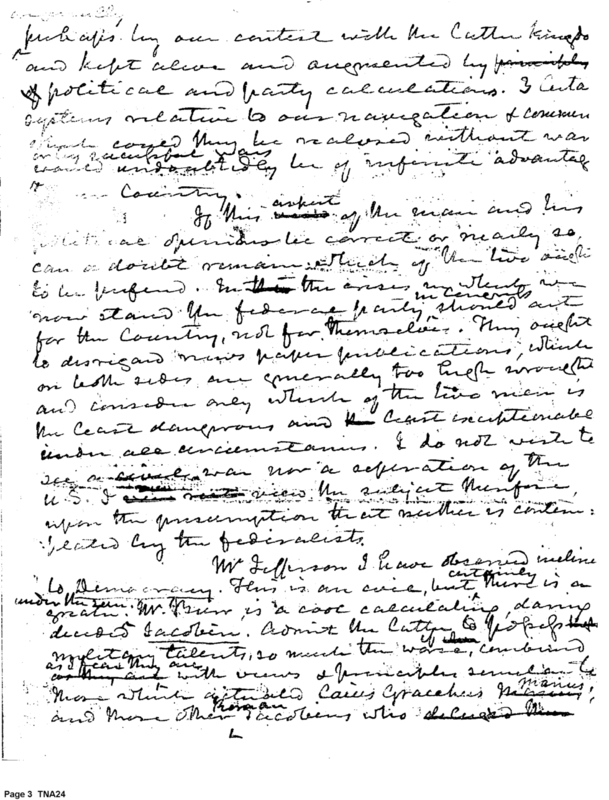 perhaps, by our contest with the latter Kingdo
and kept alive and augmented by principles
of political and party calculations. 3 Certa
systems relative to our navigation & commer
could they be realised without war
or by successful wars
would undoubtedly be of infinite advantag
Country.
aspect
If this of the man and his
opinions be correct or nearly so,
can a doubt remain which of the two ought
to be preferd. In this the crisis in which we
in general
now stand the federal party, should act
for the Country, not for themselves. They ought
to disregard news paper publications, which
on both sides are generally too high wrought
and consider only which of the two men is
the least dangerous and the least exceptionable
under all circumstances. I do not wish to
see a civil war nor a seperation of the
U.S. I view the subject therefore,
upon the presumption that neither is contem:
plated by the federalists.
Mr. Jefferson I have observed incline
to Democracy. This is an evil, but there is a
certainly
under the sun.
greater. Mr. Burr, is a cool calculating, daring
decided Jacobin. Admit the latter to possess
military talents, so much the worse, if combined
as I fear they are
as they are with views & principles similar to
those which actuated Caius Gracchus Marius,
Marius,
Roman
and those other Jacobins who deluged
Page 3 TNA24